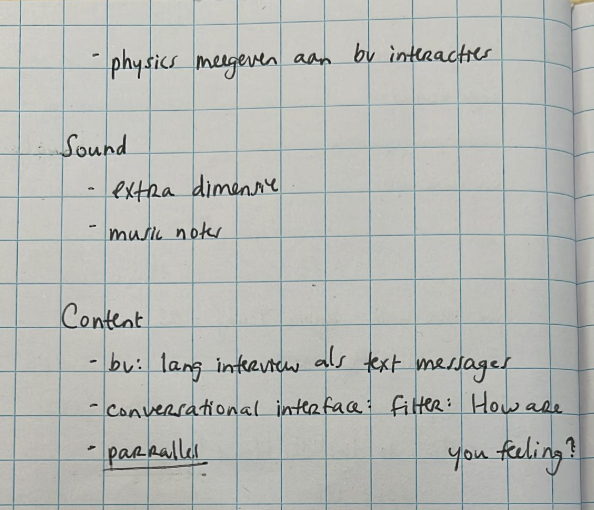 - physics meegeven aan bv interacties
Sound
- extra dimensie
- music notes
Content
- bv: lang interview als text messages
- conversational interface: filter: How are
you feeling?
- parrallel